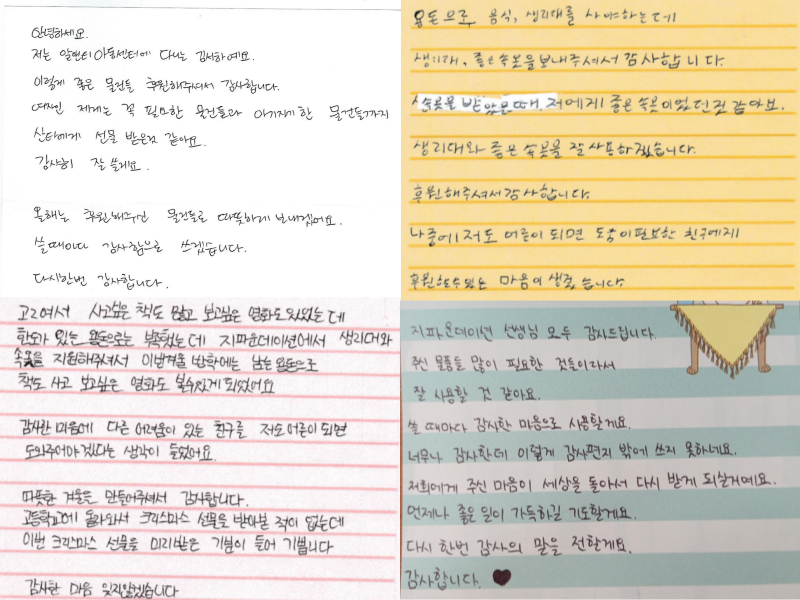 안녕하세요.
저는 알멘티아동센터에 다니는 김사하예요.
이렇게 좋은 물건들 후원해주셔서 감사합니다.
여자인 제게는 꼭 필요한 물건들과 아기자기한 물건들까지
산타에게 선물 받은것 같아요.
감사히 잘 쓸게요.
올해는 후원해주신 물건들로 따뜻하게 보내겠어요.
쓸 때마다 감사함으로 쓰겠습니다.
다시한번 감사합니다.
용돈으로 음식, 생리대를 사야하는데
생리대, 좋은속옷을보내주셔서감사합니다.
속옷을 받았을때, 저에게 좋은 속옷이었던것 같아요.
생리대와 좋은 속옷을 잘사용하겠습니다.
후원해주셔서감사합니다.
나중에 저도 어른이 되면 도움이필요한 친구에게
후원할수있는 마음이 생겼습니다.
고2여서 사고싶은 책도 많고 보고싶은 영화도있었는데
한도가 있는 용돈으로는 부족했는데 지파운데이션에서 생리대와
속옷을 지원해주셔서 이번겨울방학에는 남는 용돈으로
책도 사고 보고싶은 영화도 볼수있게 되었어요
감사한 마음에 다른 어려움이 있는 친구를 저도어른이되면
도와주어야겠다는 생각이 들었어요.
따뜻한 겨울을 만들어주셔서 감사합니다.
고등학교에 올라와서 크리스마스 선물을 받아본 적이 없는데
이번 크리스마스 선물을 미리받은 기분이 들어 기쁩니다
감사한 마음 잊지않겠습니다
지파운데이션 선생님 모두 감사드립니다.
주신 물품들 많이 필요한 것들이라서
잘 사용할 것 같아요.
쓸 때마다 감사한 마음으로 사용할게요.
너무나 감사한데 이렇게 감사편지 밖에 쓰지 못하네요.
저희에게 주신 마음이 세상을 돌아서 다시 받게 되실거예요.
언제나 좋은 일이 가득하길 기도할게요.
다시 한번 감사의 말을 전할게요.
감사합니다. ♥